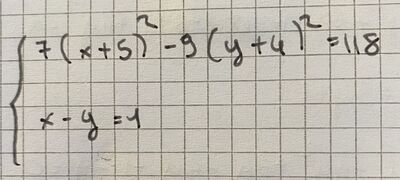 7(x+5)²-9(y+4)²=118
x-y=1